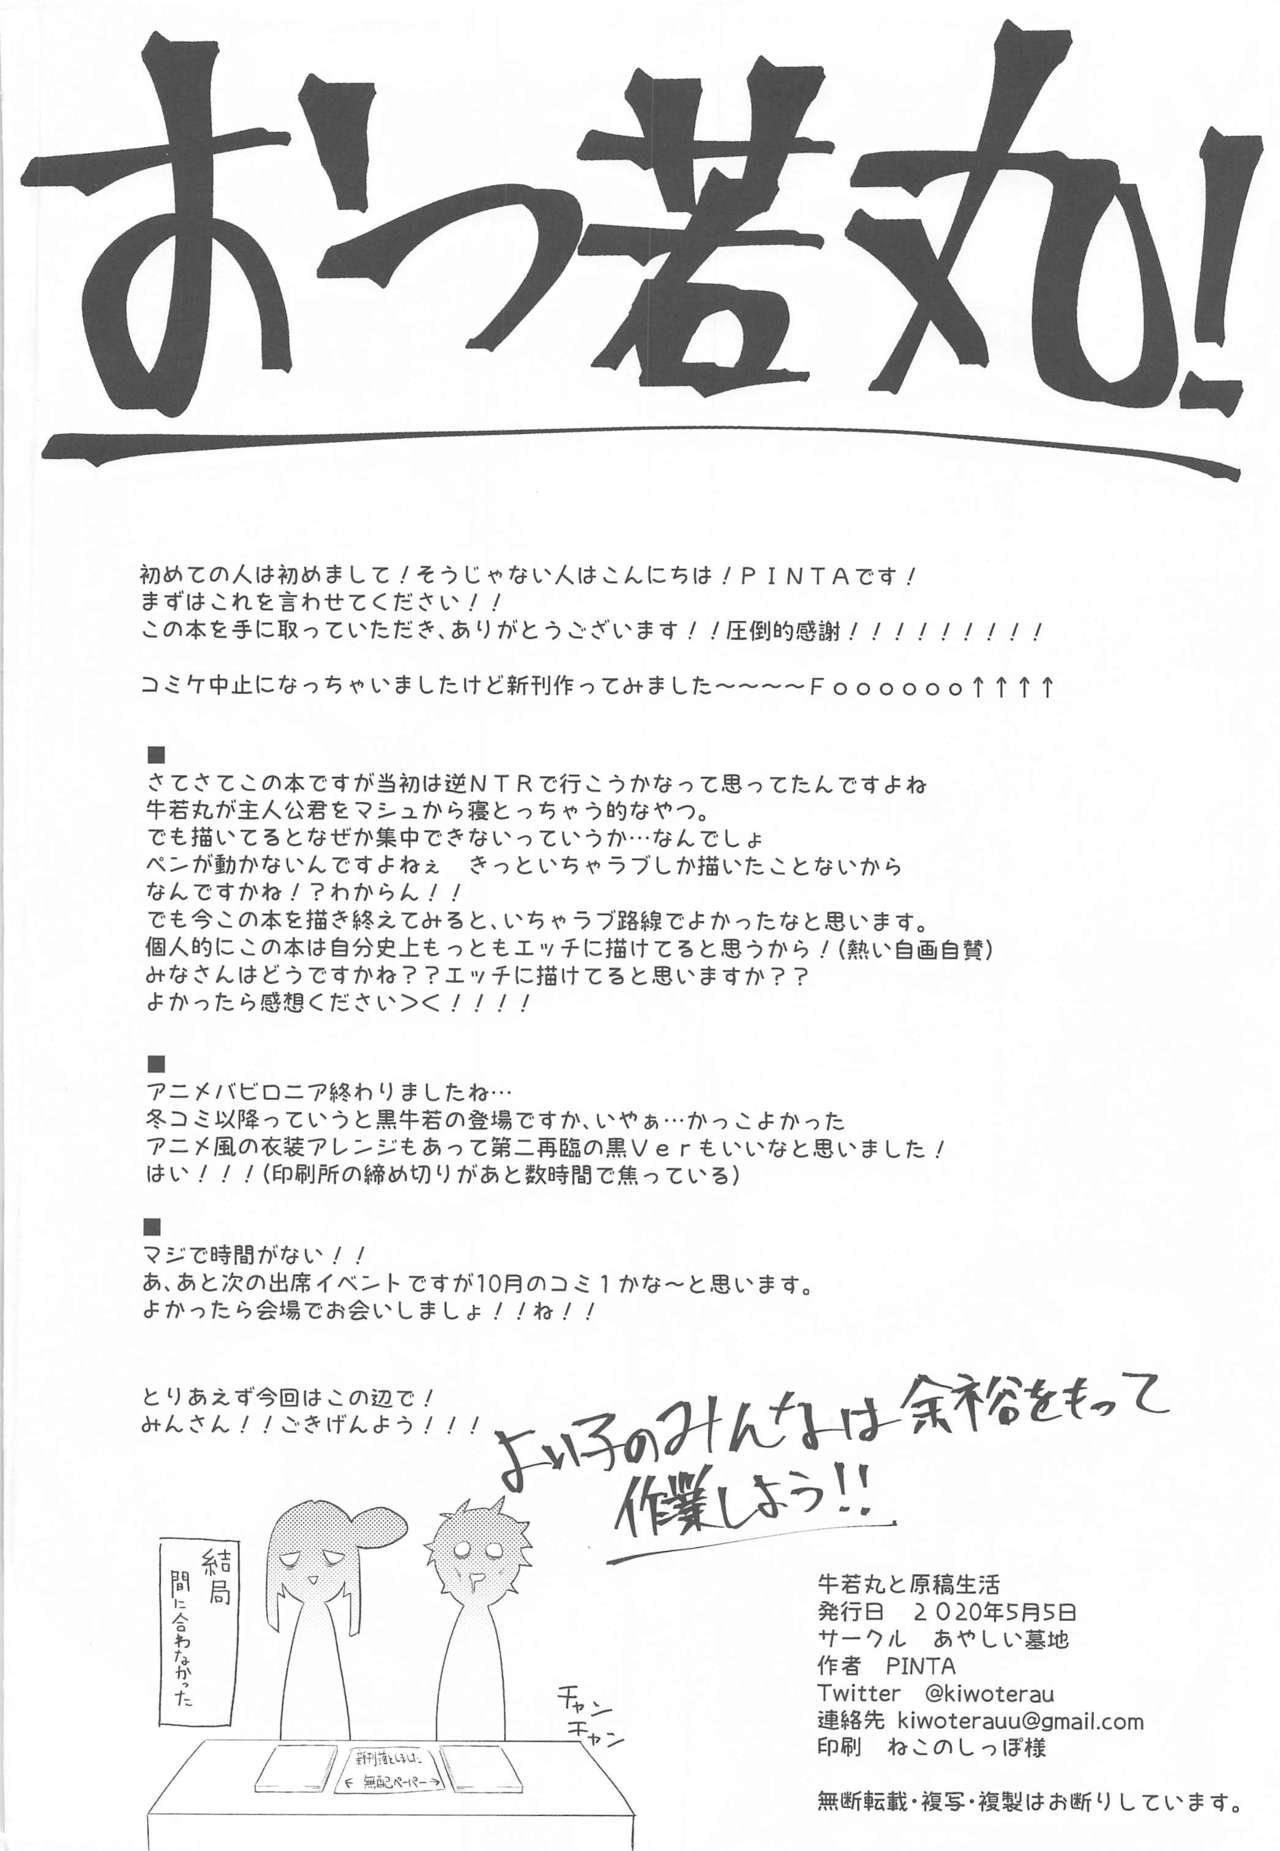 おつ若丸!
初めての人は初めまして！そうじゃない人はこんにちは！ＰＩＮＴＡです！
まずはこれを言わせてください！！
この本を手に取っていただき、ありがとうございます！！圧倒的感謝！！！！！！！！！
コミケ中止になっちゃいましたけど新刊作ってみました〜〜〜〜Ｆｏｏｏｏｏｏ↑↑↑↑
■
さてさてこの本ですが当初は逆ＮＴＲで行こうかなって思ってたんですよね
牛若丸が主人公君をマシュから寝とっちゃう的なやつ。
でも描いてるとなぜか集中できないっていうか…なんでしょ
ペンが動かないんですよねぇ　きっといちゃラブしか描いたことないから
なんですかね！？わからん！！
でも今この本を描き終えてみると、いちゃラブ路線でよかったなと思います。
個人的にこの本は自分史上もっともエッチに描けてると思うから！(熱い自画自賛)
みなさんはどうですかね？？エッチに描けてると思いますか？？
よかったら感想ください＞＜！！！！
■
アニメバビロニア終わりましたね…
冬コミ以降っていうと黒牛若の登場ですか、いやぁ…かっこよかった
アニメ風の衣装アレンジもあって第二再臨の黒Ｖｅｒもいいなと思いました！
はい！！！(印刷所の締め切りがあと数時間で焦っている)
■
マジで時間がない！！
あ、あと次の出席イベントですが10月のコミ１かな〜と思います。
よかったら会場でお会いしましょ！！ね！！
とりあえず今回はこの辺で！
みんさん！！ごきげんよう！！！
よい子のみんなは余裕をもって
作業しよう!!
結局
間に合わなかった
チャン
チャン
新刊落としました
← 無配ペーパー →
牛若丸と原稿生活
発行日　２０２０年５月５日
サークル　あやしい墓地
作者　PINTA
Twitter　@kiwoterau
連絡先 kiwoterauu@gmail.com
印刷　ねこのしっぽ様
無断転載・複写・複製はお断りしています。